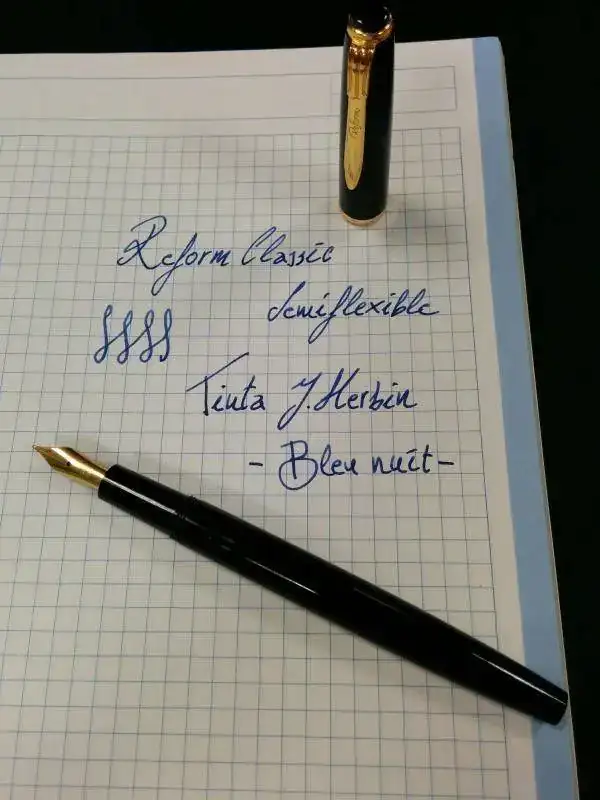 Reform
Reform Classic
Semiflexible
Tinta J. Herbin
- Bleu nuit -